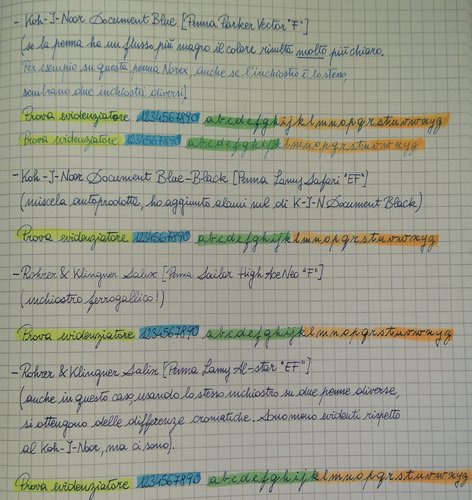 - Koh-I-Noor Document Blue [Penna Parker Vector "F"]
(se la penna ha un flusso più magro il colore risulta molto più chiaro.
Per esempio su questa penna Norex, anche se l'inchiostro è lo stesso,
sembrano due inchiostri diversi)
Prova evidenziatore 1234567890 abcdefghijklmnopqrstuvwxyz
Prova evidenziatore 1234567890 abcdefghijklmnopqrstuvwxyz
- Koh-I-Noor Document Blue-Black [Penna Lamy Safari "EF"]
(miscela autoprodotta, ho aggiunto alcuni ml di K-I-N Document Black)
Prova evidenziatore 1234567890 abcdefghijklmnopqrstuvwxyz
- Rohrer & Klingner Salix [Penna Sailor High Ace Neo "F"]
(inchiostro ferrogallico!)
Prova evidenziatore 1234567890 abcdefghijklmnopqrstuvwxyz
- Rohrer & Klingner Salix [Penna Lamy Al-star "EF"]
(anche in questo caso, usando lo stesso inchiostro su due penne diverse,
si ottengono delle differenze cromatiche. Sono meno evidenti rispetto
al Koh-I-Noor, ma ci sono).
Prova evidenziatore 1234567890 abcdefghijklmnopqrstuvwxyz